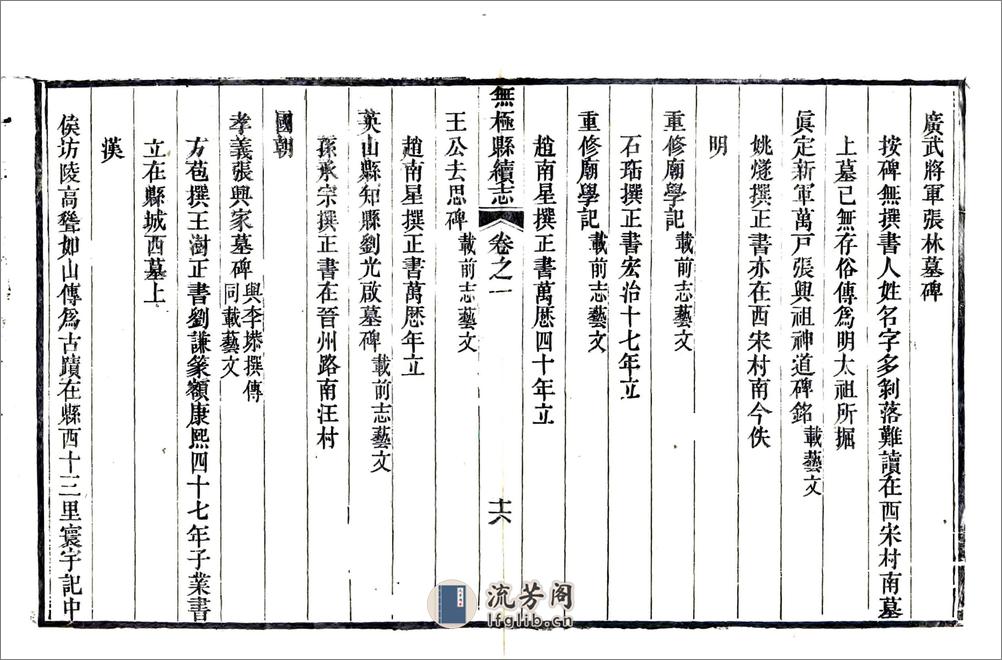 廣武將軍張林墓碑
按碑無撰書人姓名字多剝落難讀在西宋村南墓
上墓已無存俗傳爲明太祖所掘
眞定新軍萬戸張興祖神道碑銘載藝文
姚燧撰正書亦在西宋村南今佚
明
重修廟學記載前志藝文
石珤撰正書宏治十七年立
重修廟學記載前志藝文
趙南星撰正書萬厯四十年立
無極縣續志 卷之一 十六
王公去思碑載前志藝文
趙南星撰正書萬厯年立
英山縣知縣劉光啟墓碑載前志藝文
孫承宗撰正書在晉州路南汪村
國朝
孝義張興家墓碑與李塨撰傳
同載藝文
方苞撰王澍正書劉謙篆額康熙四十七年子業書
立在縣城西墓上
漢
侯坊陵高聳如山傳爲古蹟在縣西十三里寰宇記中
流芳阁
lfglib.cn